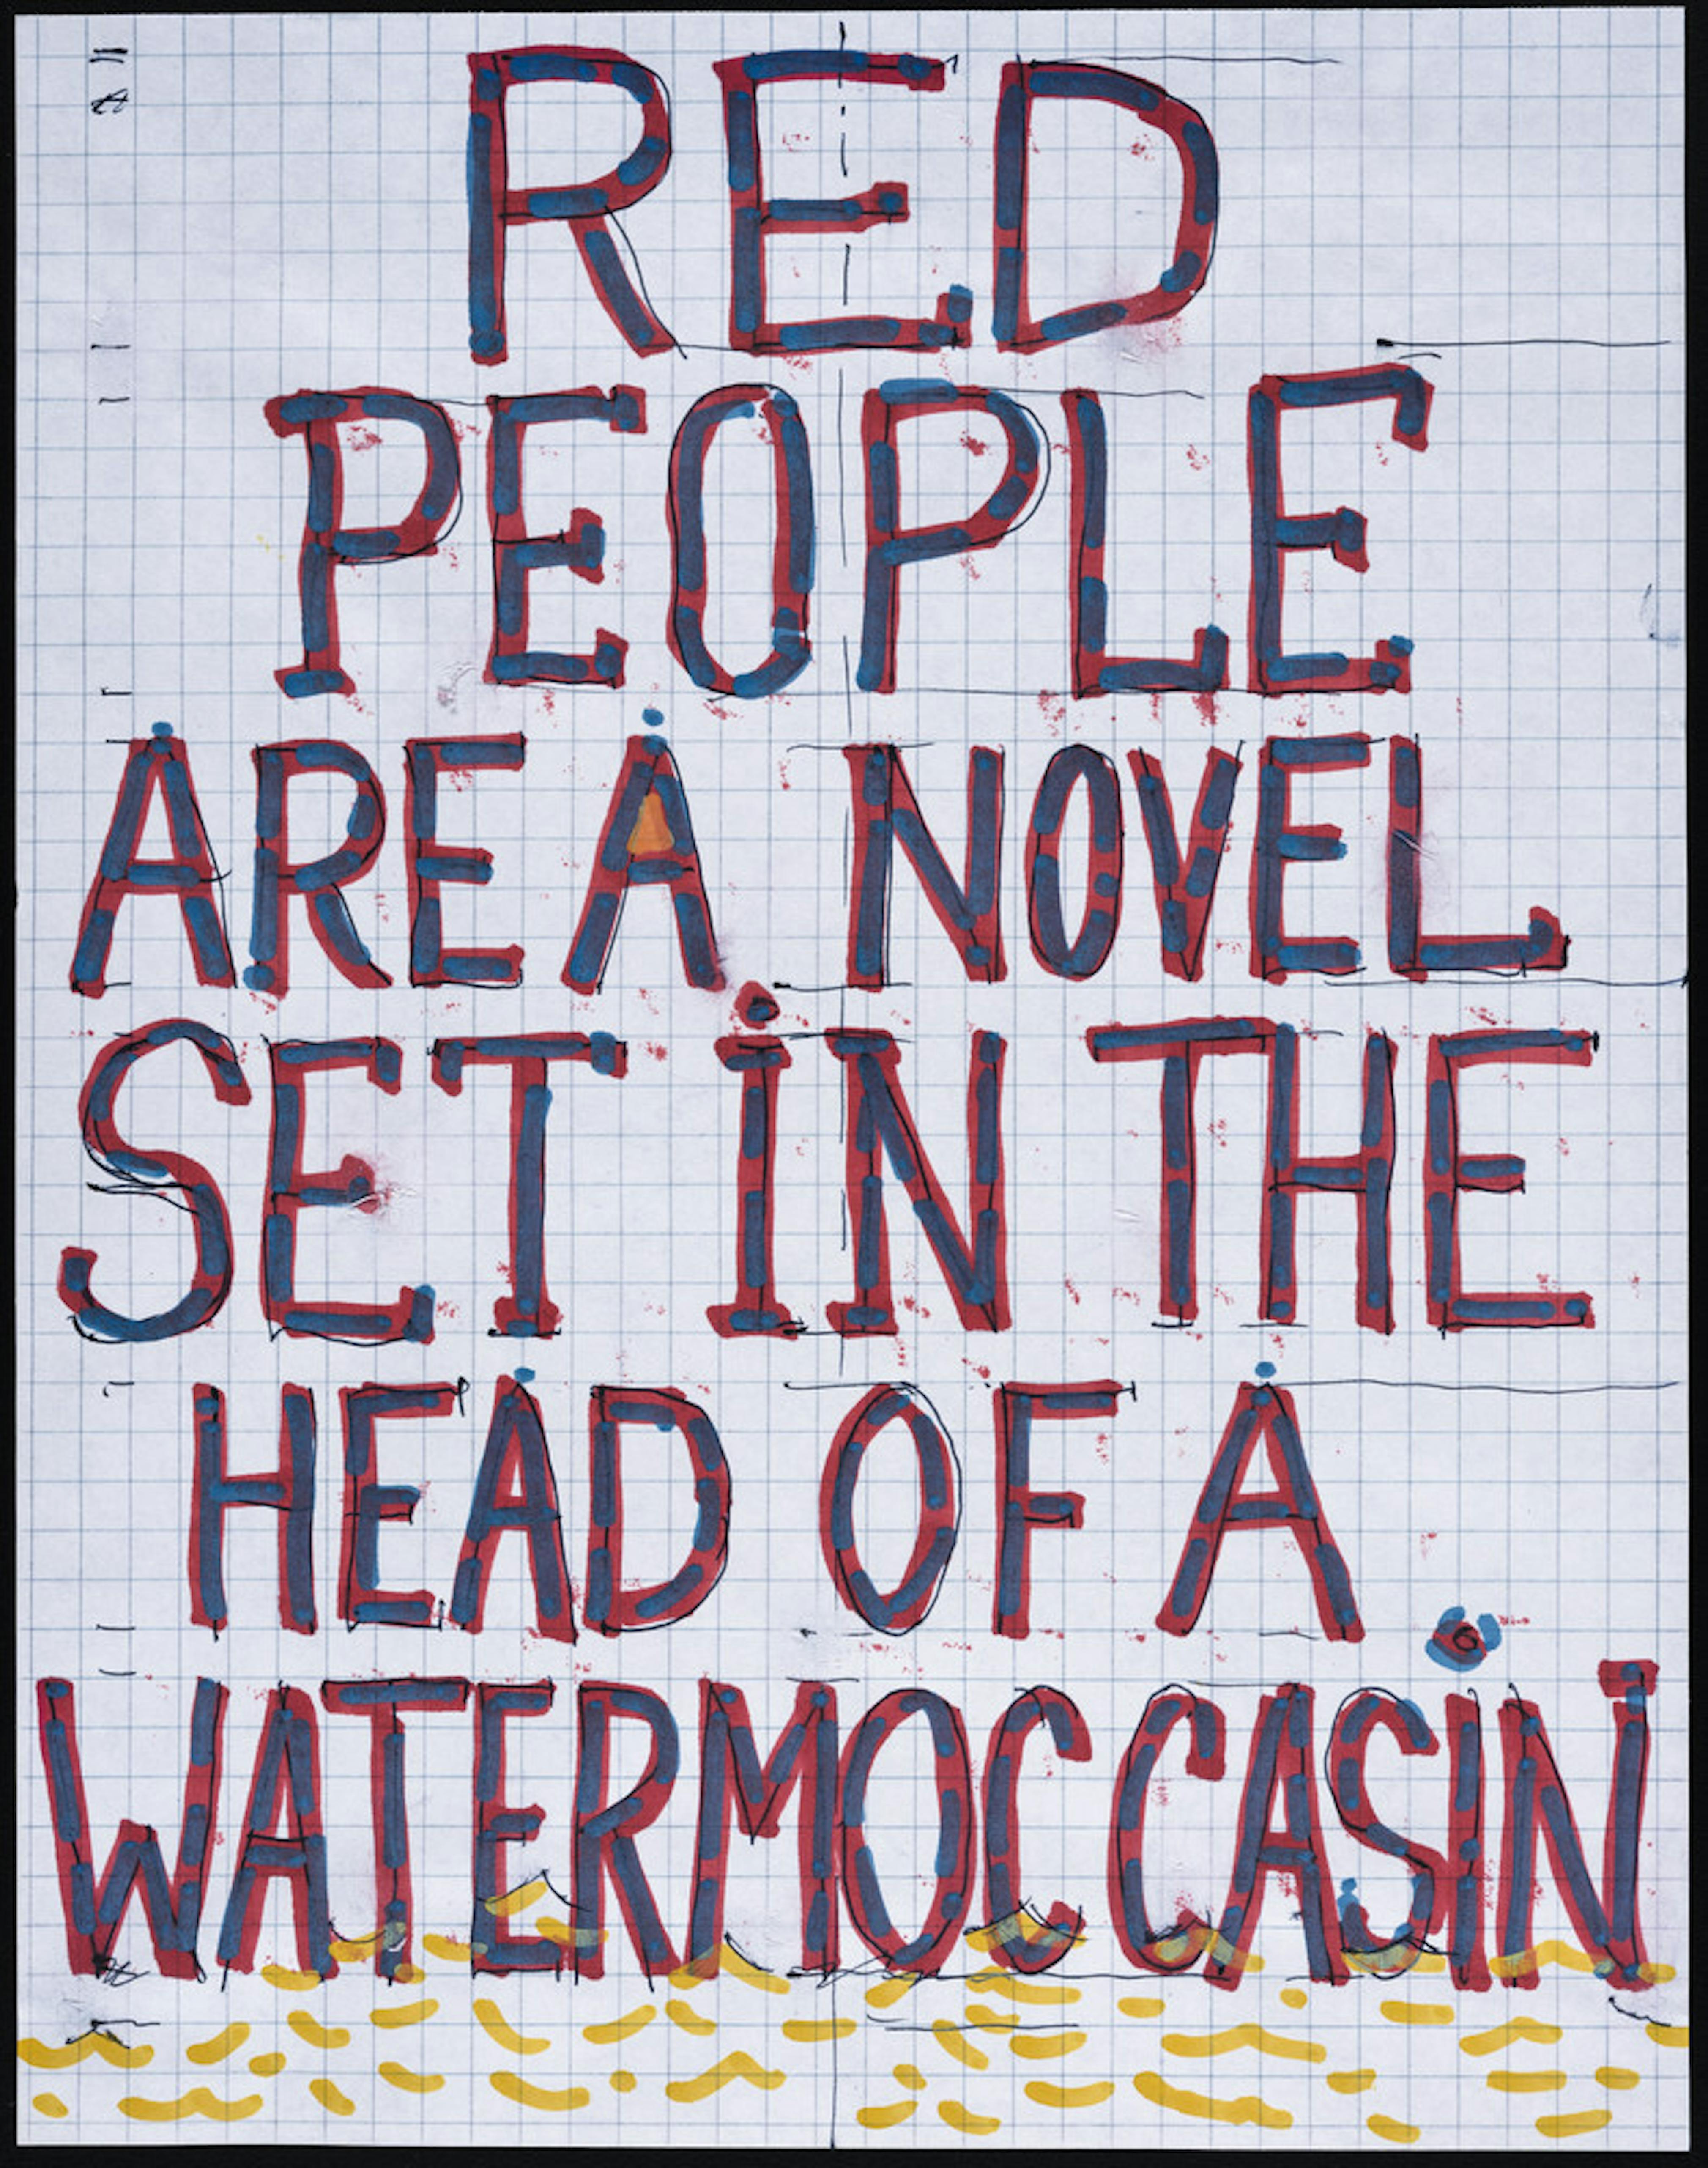 RED
PEOPLE
ARE A NOVEL
SET IN THE
HEAD OF A
WATERMOCCASIN